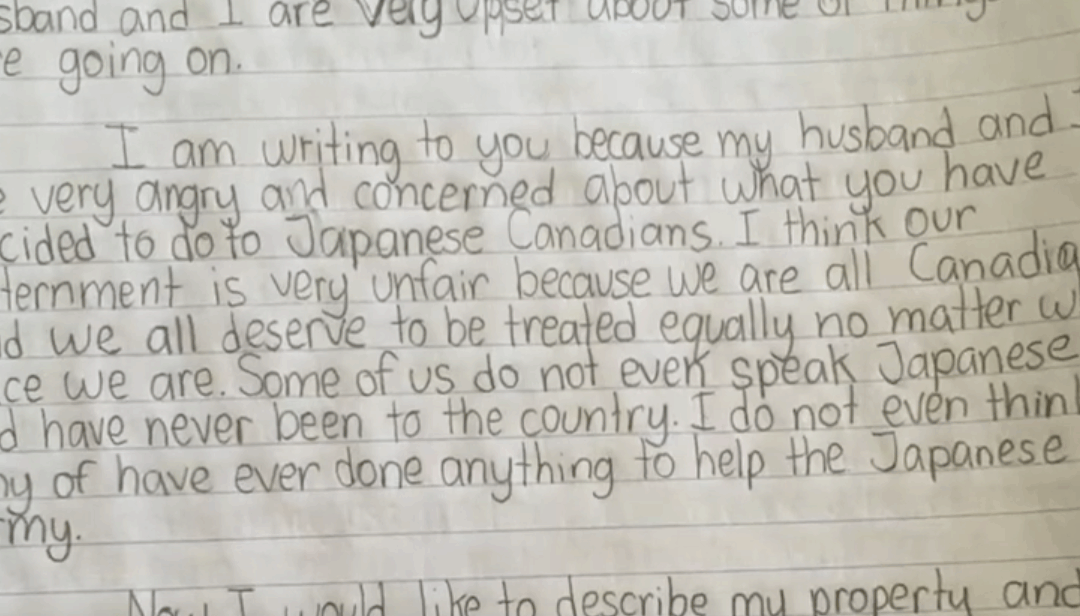 sband and I are very upset about some of
e going on.
I am writing to you because my husband and I
e very angry and concerned about what you have
cided to do to Japanese Canadians. I think our
ternment is very unfair because we are all Canadia
d we all deserve to be treated equally no matter w
ce we are. Some of us do not even speak Japanese
d have never been to the country. I do not even thin
ny of have ever done anything to help the Japanese
my.
Now I would like to describe my property and